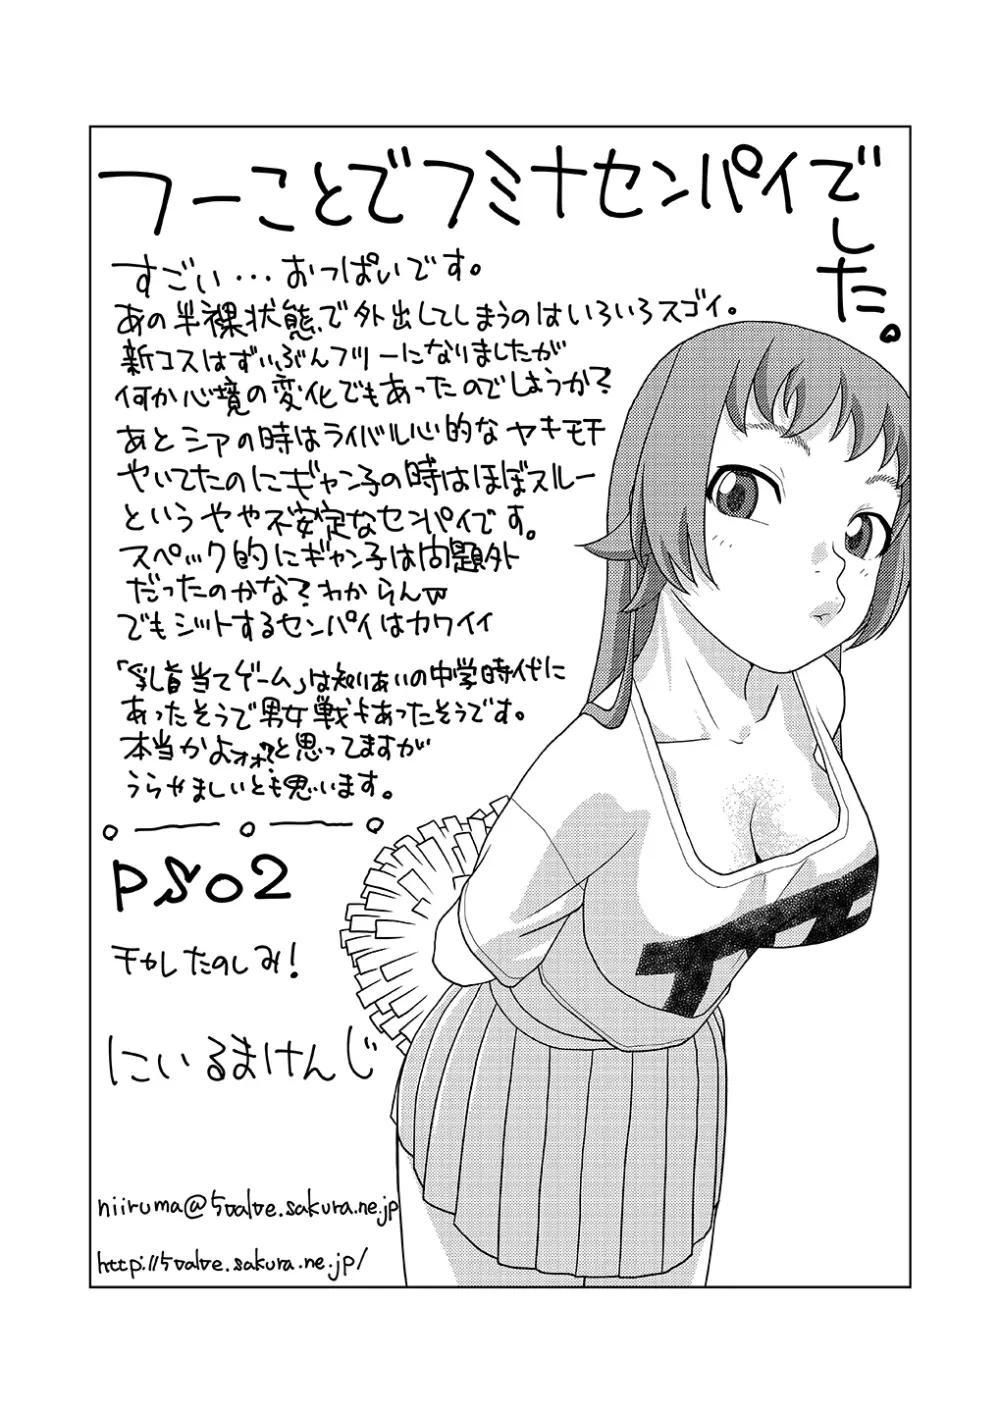 フーことでフミナセンパイでした。
すごい…おっぱいです。
あの半裸状態で外出してしまうのはいろいろスゴイ。
新コスはずいぶんフツーになりましたが
何か心境の変化でもあったのでしようか?
あとシアの時はライバル心的なヤキモチ
やいてたのにギャン子の時はほぼスルー
というやや不安定なセンパイです。
スペック的にギャン子は問題外
だったのかな?わからんw
でもジットするセンパイはカワイイ
「乳首当てゲーム」は知りあいの中学時代に
あったそうで男女戦もあったそうです。
本当かよォォ?と思ってますが
うらやましいとも思います。
PSO2
チャレたのしみ!
にいるまけんじ
niiruma@5valve.sakura.ne.jp
http://5valve.sakura.ne.jp/